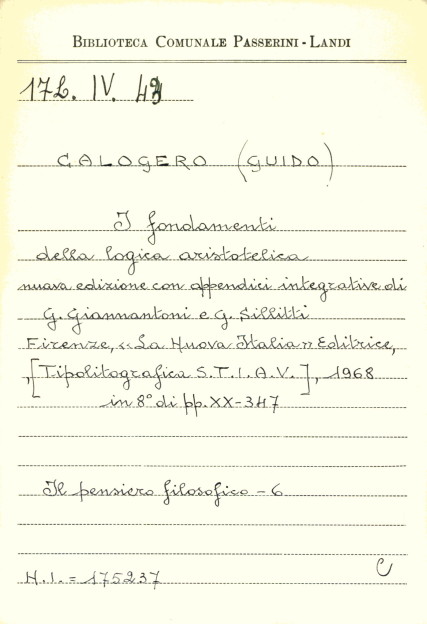 BIBLIOTECA COMUNALE PASSERINI - LANDI
17L. IV. 43
CALOGERO (GUIDO)
I fondamenti
della logica aristotelica
nuova edizione con appendici integrative di
G. Giannantoni e G. Sillitti
Firenze, "La Nuova Italia" Editrice,
,[Tipolitografica S.T.I.A.V.], 1968
in 8° di pp. XX-347
Il pensiero filosofico - 6
C
N.I. = 175237